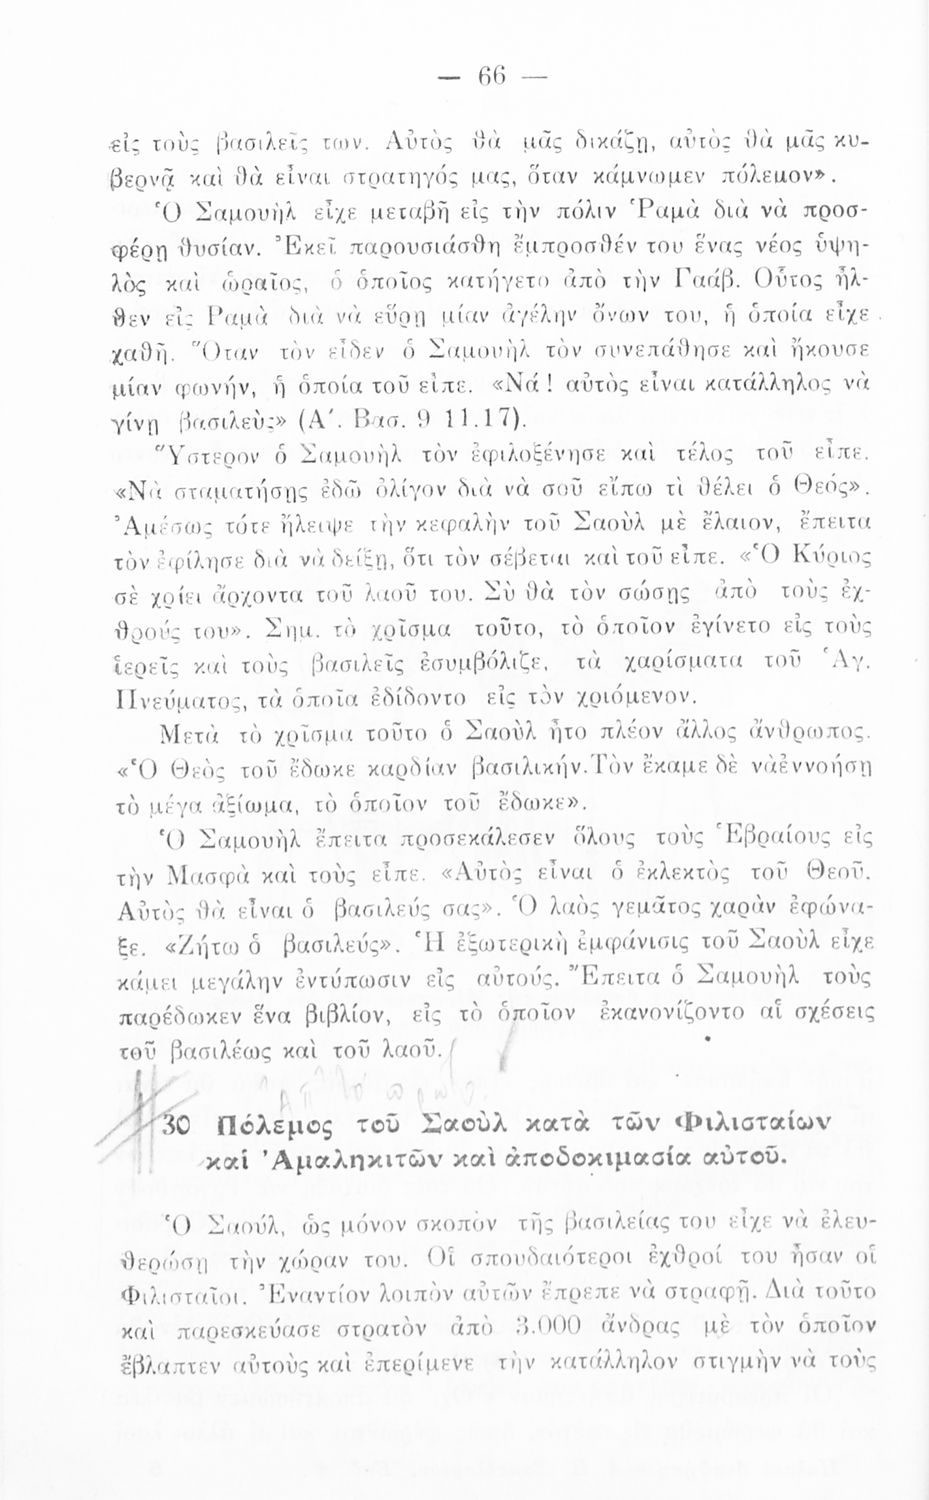 — 66 —
εἰς τοὺς βασιλεῖς των. Αὐτὸς θὰ μᾶς δικάζῃ, αὐτὸς θὰ μᾶς κυ-
βερνᾷ καὶ θὰ εἶναι στρατηγός μας, ὅταν κάμνωμεν πόλεμον».
Ὁ Σαμουὴλ εἶχε μεταβῆ εἰς τὴν πόλιν Ῥαμὰ διὰ νὰ προσ-
φέρῃ θυσίαν. Ἐκεῖ παρουσιάσθη ἔμπροσθέν του ἕνας νέος ὑψη-
λὸς καὶ ὡραῖος, ὁ ὁποῖος κατήγετο ἀπὸ τὴν Γαάβ. Οὗτος ἦλ-
θεν εἰς Ραμὰ διὰ νὰ εὕρῃ μίαν ἀγέλην ὄνων του, ἡ ὁποία εἶχε
χαθῆ. Ὅταν τὸν εἶδεν ὁ Σαμουὴλ τὸν συνεπάθησε καὶ ἤκουσε
μίαν φωνήν, ἡ ὁποία τοῦ εἶπε. «Νά! αὐτὸς εἶναι κατάλληλος νὰ
γίνῃ βασιλεὺς» (Α΄. Βασ. 9 11.17).
Ὕστερον ὁ Σαμουὴλ τὸν ἐφιλοξένησε καὶ τέλος τοῦ εἶπε.
«Νὰ σταματήσῃς ἐδῶ ὀλίγον διὰ νὰ σοῦ εἴπω τὶ θέλει ὁ Θεός».
Ἀμέσως τότε ἤλειψε τὴν κεφαλὴν τοῦ Σαοὺλ μὲ ἔλαιον, ἔπειτα
τὸν ἐφίλησε διὰ νὰ δείξῃ, ὅτι τὸν σέβεται καὶ τοῦ εἶπε. «Ὁ Κύριος
σὲ χρίει ἄρχοντα τοῦ λαοῦ του. Σὺ θὰ τὸν σώσῃς ἀπὸ τοὺς ἐχ-
θρούς του». Σημ. τὸ χρῖσμα τοῦτο, τὸ ὁποῖον ἐγίνετο εἰς τοὺς
ἱερεῖς καὶ τοὺς βασιλεῖς ἐσυμβόλιζε, τὰ χαρίσματα τοῦ Ἁγ.
Πνεύματος, τὰ ὁποῖα ἐδίδοντο εἰς τὸν χριόμενον.
Μετὰ τὸ χρῖσμα τοῦτο ὁ Σαοὺλ ἦτο πλέον ἄλλος ἄνθρωπος.
«Ὁ Θεὸς τοῦ ἔδωκε καρδίαν βασιλικήν. Τὸν ἔκαμε δὲ νὰ ἐννοήσῃ
τὸ μέγα ἀξίωμα, τὸ ὁποῖον τοῦ ἔδωκε».
Ὁ Σαμουὴλ ἔπειτα προσεκάλεσεν ὅλους τοὺς Ἑβραίους εἰς
τὴν Μασφὰ καὶ τοὺς εἶπε. «Αὐτὸς εἶναι ὁ ἐκλεκτὸς τοῦ Θεοῦ.
Αὐτὸς θὰ εἶναι ὁ βασιλεύς σας». Ὁ λαὸς γεμᾶτος χαρὰν ἐφώνα-
ξε. «Ζήτω ὁ βασιλεύς». Ἡ ἐξωτερικὴ ἐμφάνισις τοῦ Σαοὺλ εἶχε
κάμει μεγάλην ἐντύπωσιν εἰς αὐτούς. Ἔπειτα ὁ Σαμουὴλ τοὺς
παρέδωκεν ἕνα βιβλίον, εἰς τὸ ὁποῖον ἐκανονίζοντο αἱ σχέσεις
τοῦ βασιλέως καὶ τοῦ λαοῦ.
30 Πόλεμος τοῦ Σαοὺλ κατὰ τῶν Φιλισταίων
καί Ἀμαληκιτῶν καὶ ἀποδοκιμασία αὐτοῦ.
Ὁ Σαούλ, ὡς μόνον σκοπὸν τῆς βασιλείας του εἶχε νὰ ἐλευ-
θερώσῃ τὴν χώραν του. Οἱ σπουδαιότεροι ἐχθροί του ἦσαν οἱ
Φιλισταῖοι. Ἐναντίον λοιπὸν αὐτῶν ἔπρεπε νὰ στραφῆ. Διὰ τοῦτο
καὶ παρεσκεύασε στρατὸν ἀπὸ 3.000 ἄνδρας μὲ τὸν ὁποῖον
ἔβλαπτεν αὐτοὺς καὶ ἐπερίμενε τὴν κατάλληλον στιγμὴν νὰ τοὺς